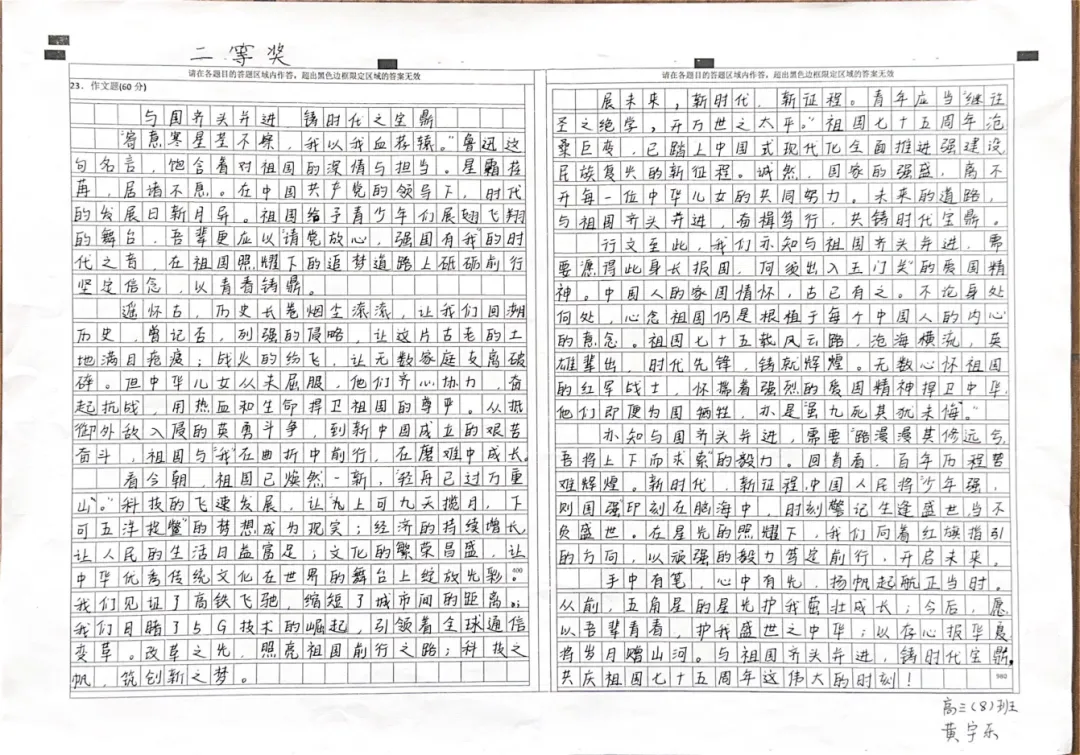 二等奖
请在各题目的答题区域内作答,超出黑色边框限定区域的答案无效
23. 作文题(60分)
与国齐头并进 铸时代之宝鼎
“寄意寒星荃不察,我以我血荐轩辕。”鲁迅这
句名言,饱含着对祖国的深情与担当。星霜荏
苒,居诸不息。在中国共产党的领导下,时代
的发展日新月异。祖国给予青少年们展翅飞翔
的舞台,吾辈更应以“请党放心,强国有我”的时
代之音,在祖国照耀下的追梦道路上砥砺前行
坚定信念,以青春铸鼎。
遥怀古,历史长卷烟尘滚滚,让我们回溯
历史,曾记否,列强的侵略,让这片古老的土
地满目疮痍;战火的纷飞,让无数家庭支离破
碎。但中华儿女从未屈服,他们齐心协力,奋
起抗战,用热血和生命捍卫祖国的尊严。从抵
御外敌入侵的英勇斗争,到新中国成立的艰苦
奋斗,祖国与“我”在曲折中前行,在磨难中成长。
看今朝,祖国已焕然一新,“轻舟已过万重
山”。科技的飞速发展,让“九上可九天揽月,下
可五洋捉鳖”的梦想成为现实;经济的持续增长,
让人民的生活日益富足;文化的繁荣昌盛,让
中华优秀传统文化在世界的舞台上绽放光彩。
400
我们见证了高铁飞驰,缩短了城市间的距离;
我们目睹了5G技术的崛起,引领着全球通信
变革。改革之光,照亮祖国前行之路;科技之
帆,筑创新之梦。
请在各题目的答题区域内作答,超出黑色边框限定区域的答案无效
展未来,新时代,新征程。青年应当“继往
圣之绝学,开万世之太平。”祖国七十五周年沧
桑巨变,已踏上中国式现代化全面推进强建设,
民族复兴的新征程。诚然,国家的强盛,离不
开每一位中华儿女的共同努力。未来的道路,
与祖国齐头并进,奋楫笃行,共铸时代宝鼎。
行文至此,我们亦知与祖国齐头并进,需
要“愿得此身长报国,何须生入玉门关”的爱国精
神。中国人的家国情怀,古已有之。不论身处
何处,心念祖国仍是根植于每个中国人的内心
的意念。祖国七十五载风云路,沧海横流,英
雄辈出,时代先锋,铸就辉煌。无数心怀祖国
的红军战士,怀揣着强烈的爱国精神捍卫中华,
他们即便为国牺牲,亦是“虽九死其犹未悔。”
亦知与国齐头并进,需要“路漫漫其修远兮,
吾将上下而求索”的毅力。回首看,百年历程苦
难辉煌。新时代,新征程,中国人民将“少年强,
则国强”印刻在脑海中,时刻警记生逢盛世当不
负盛世。在星光的照耀下,我们向着红旗指引
的方向,以顽强的毅力笃定前行,开启未来。
手中有笔,心中有光,扬帆起航正当时。
从前,五角星的星光护我茁壮成长;今后,愿
以吾辈青春,护我盛世之中华;以存心报华夏,
将岁月赠山河。与祖国齐头并进,铸时代宝鼎,
共庆祖国七十五周年这伟大的时刻!
980
高三(8)班
黄宇乐